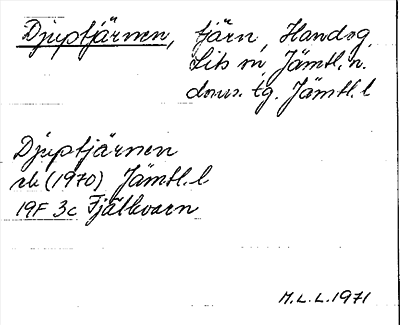 Djuptjärnen, tjärn, Handog,
Lits sn, Jämtl. n.
doms. tg. Jämtl. l
Djuptjärnen
rk (1970) Jämtl. l
19F 3c Fjällkvarn
M.L.L. 1971